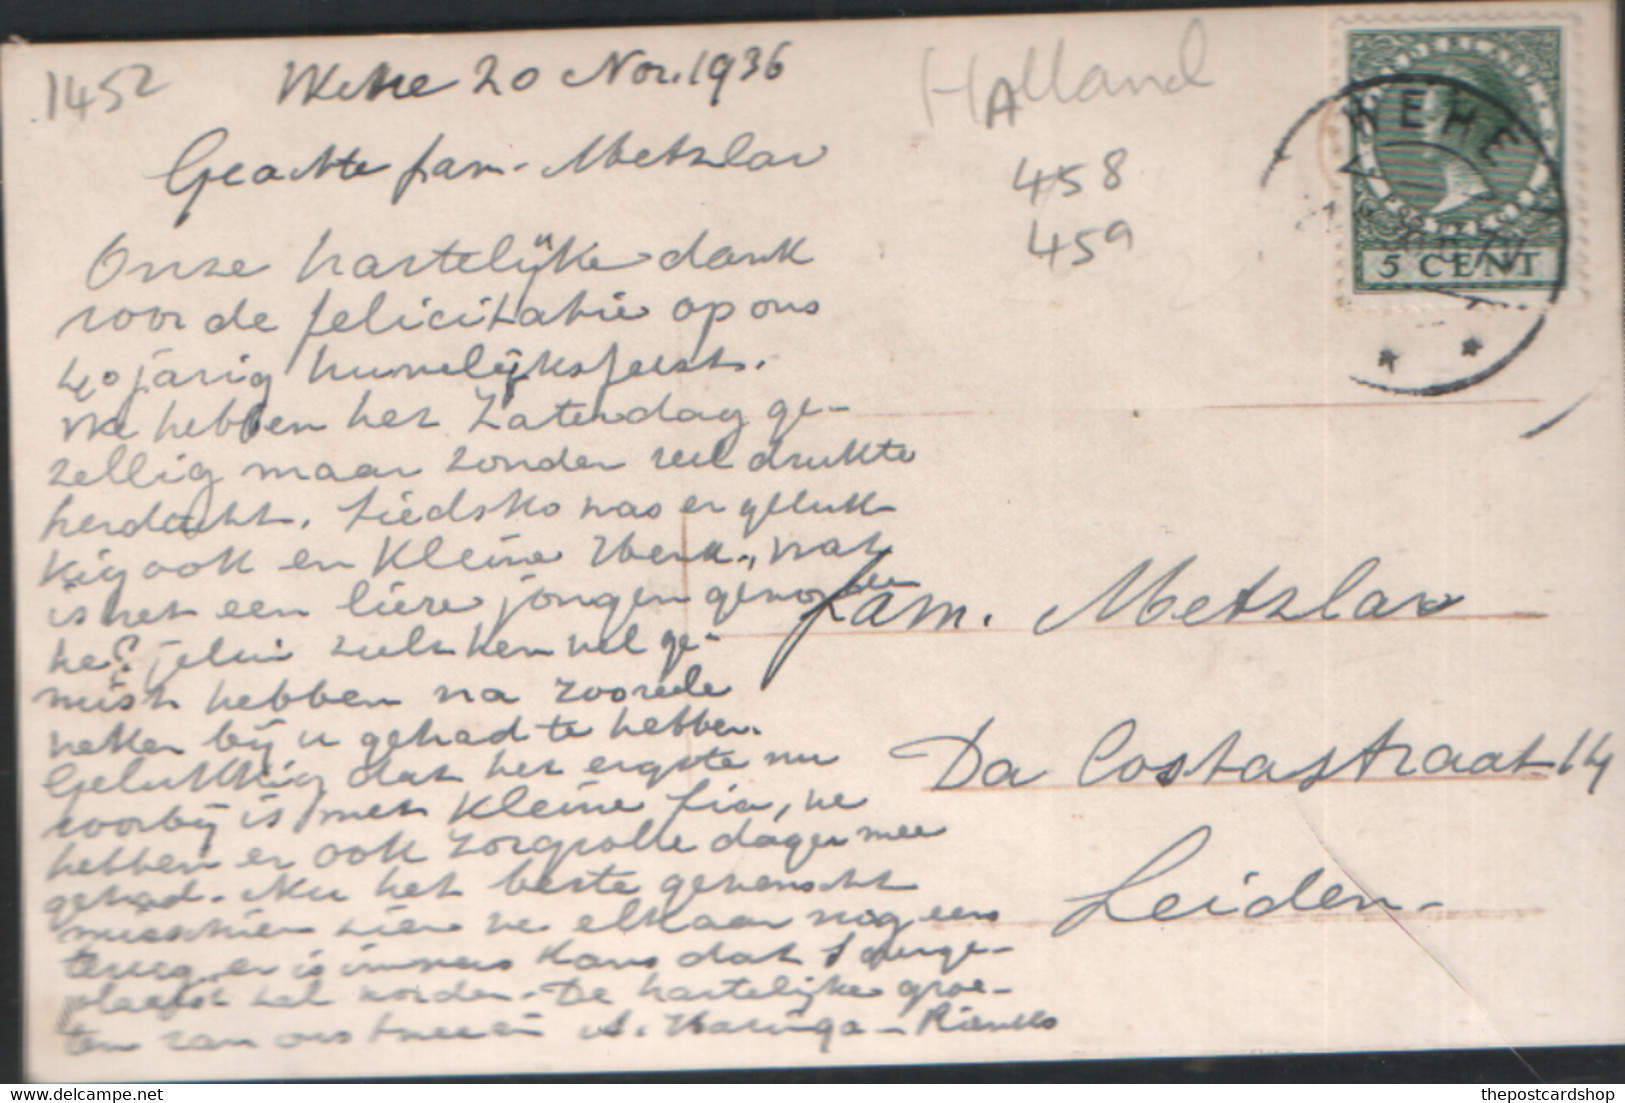 1452
Wehe 20 Nov. 1936
Holland
A
458
459
NEDERLAND
WEHE
5 CENT
Geachte fam. Metzlar
Onze hartelijke dank
voor de felicitatie op ons
40 jarig huwelijksfeest.
We hebben het Zaterdag ge-
zellig maar zonder veel drukte
herdacht. Liedsko was er geluk-
kig ook en kleine Henk., wat
is het een lieve jongen geworden
he? jelui zult hen wel ge-
mist hebben na zoovele
weken bij u gehad te hebben.
Gelukkig dat het ergste nu
voorbij is met kleine Lia, we
hebben er ook zorgvolle dagen mee
gehad. Nu het beste gewenscht
misschien zien we elkaar nog eens
terug, er is immers kans dat S
plaatst zal worden. De hartelijke groe-
ten van ons tweeën A. Wariga - Rienks
Fam. Metzlar
Da Costastraat 14
Leiden.
thepostcardshop